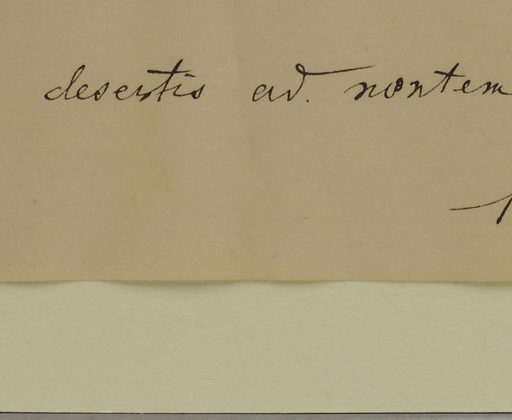 desertis ad. montem